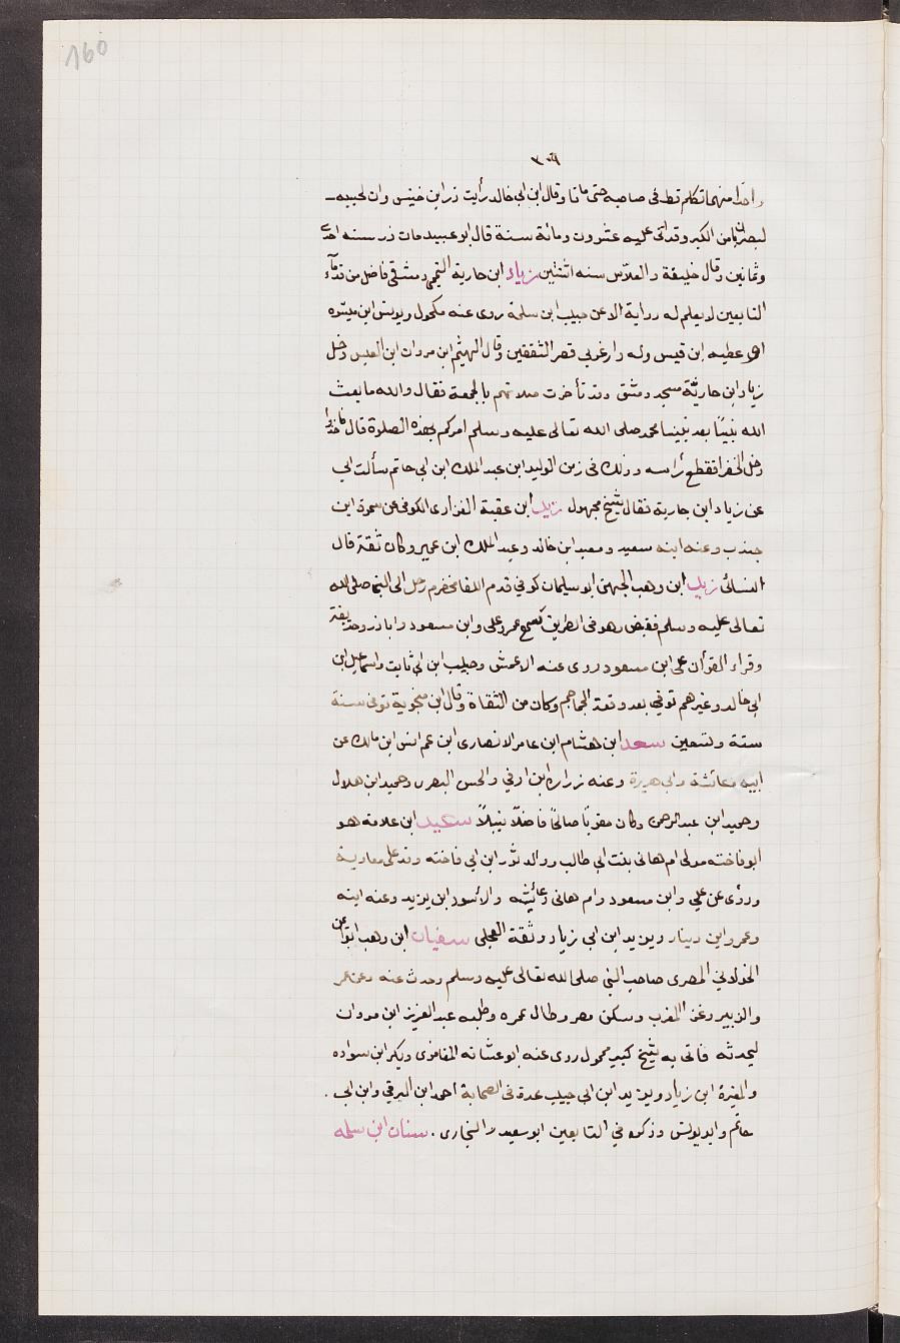 160
٣٠٩
واحدا منهما تكلم قط فى صاحبه حتى ماتا وقال ابن ابى خالد رأيت زر ابن حبيش وان لحييه
ليضربان من الكبر وقد اتى عليه عشرون ومائة سنة قال ابو عبيد مات زر سنه احدى
وثمانين وقال خليفة والفلاس سنه اثنتين زياد ابن حارية التميمى دمشقى فاضل من قدماء
التابعين لا يعلم له رواية الا عن حبيب ابن سلمة روى عنه مكحول ويونس ابن ميسره
عطيه ابن قيس وله دار غربى قصر الثقفين وقال الهيثم ابن مروان ابن العبس دخل
زياد ابن حارثة مسجد دمشق وقد تأخرت صلاتهم بالجمعة فقال والله ما بعث
الله نبيًا بعد نبينا محمد صلى الله تعالى عليه وسلم امركم بهذه الصلوة قال فاخذ
دخل الخضرا فقطع رأسه وذلك فى زمن الوليد ابن عبد الملك ابن ابى حاتم سألت ابى
عن زياد ابن جارية فقال شيخ مجهول زيد ابن عقبة الفزارى الكوفى عن سمرة ابن
جندب وعنه ابنه سعيد ومعبد ابن خالد وعبد الملك ابن عمير وكان ثقة قال
النسائى زيد ابن وهب الجهنى ابو سليمان كوفي قدم اللقا مخضرم رحل الى النبى صلى الله
تعالى عليه وسلم فقبض وهو فى الطريق سمع عمر وعلى وابن مسعود وابا ذر وحذيفة
وقراء القرأن على ابن مسعود روى عنه الاعمش وحبيب ابن ابى ثابت واسماعيل ابن
ابى خالد وغيرهم توفي بعد وقعة الجماجم وكان من الثقاة وقال ابن منجوية توفى سنة
ستة وتسعين سعد ابن هشام ابن عامر الانصارى ابن عم انس ابن مالك عن
ابيه وعائشة وابى هريرة وعنه زراره ابن اوفي والحسن البصرى وحميد ابن هلال
وحميد ابن عبد الرحمن وكان مقريًا صالحًا فاضلًا نبيلًا سعيد ابن علاقة هو
ابو فاخته مولى ام هانى بنت ابى طالب ووالد ثور ابن ابى فاخته وفد على معاوية
وروى عن علي وابن مسعود وام هانى وعائشه والاسود ابن يزيد وعنه ابنه
وعمر وابن دينار ويزيد ابن ابى زياد وثقة العجلى سفيان ابن وهب ابو ايمن
الخولاني المصرى صاحب النبى صلى الله تعالى عليه وسلم وحدث عنه وعن عمر
والزبير وغزا المغرب وسكن مصر وطال عمره وطلبه عبد العزيز ابن مروان
ليحدثه فاتى به شيخ كبير محمول روى عنه ابو عشانه المعافرى وبكر ابن سواده
والمغيرة ابن زياد ويزيد ابن ابى حبيب عدة فى الصحابة احمد ابن البرقى وابن ابى
حاتم وابن يونس وذكره في التابعين ابو سعيد والبخارى . سنان ابن سلمه